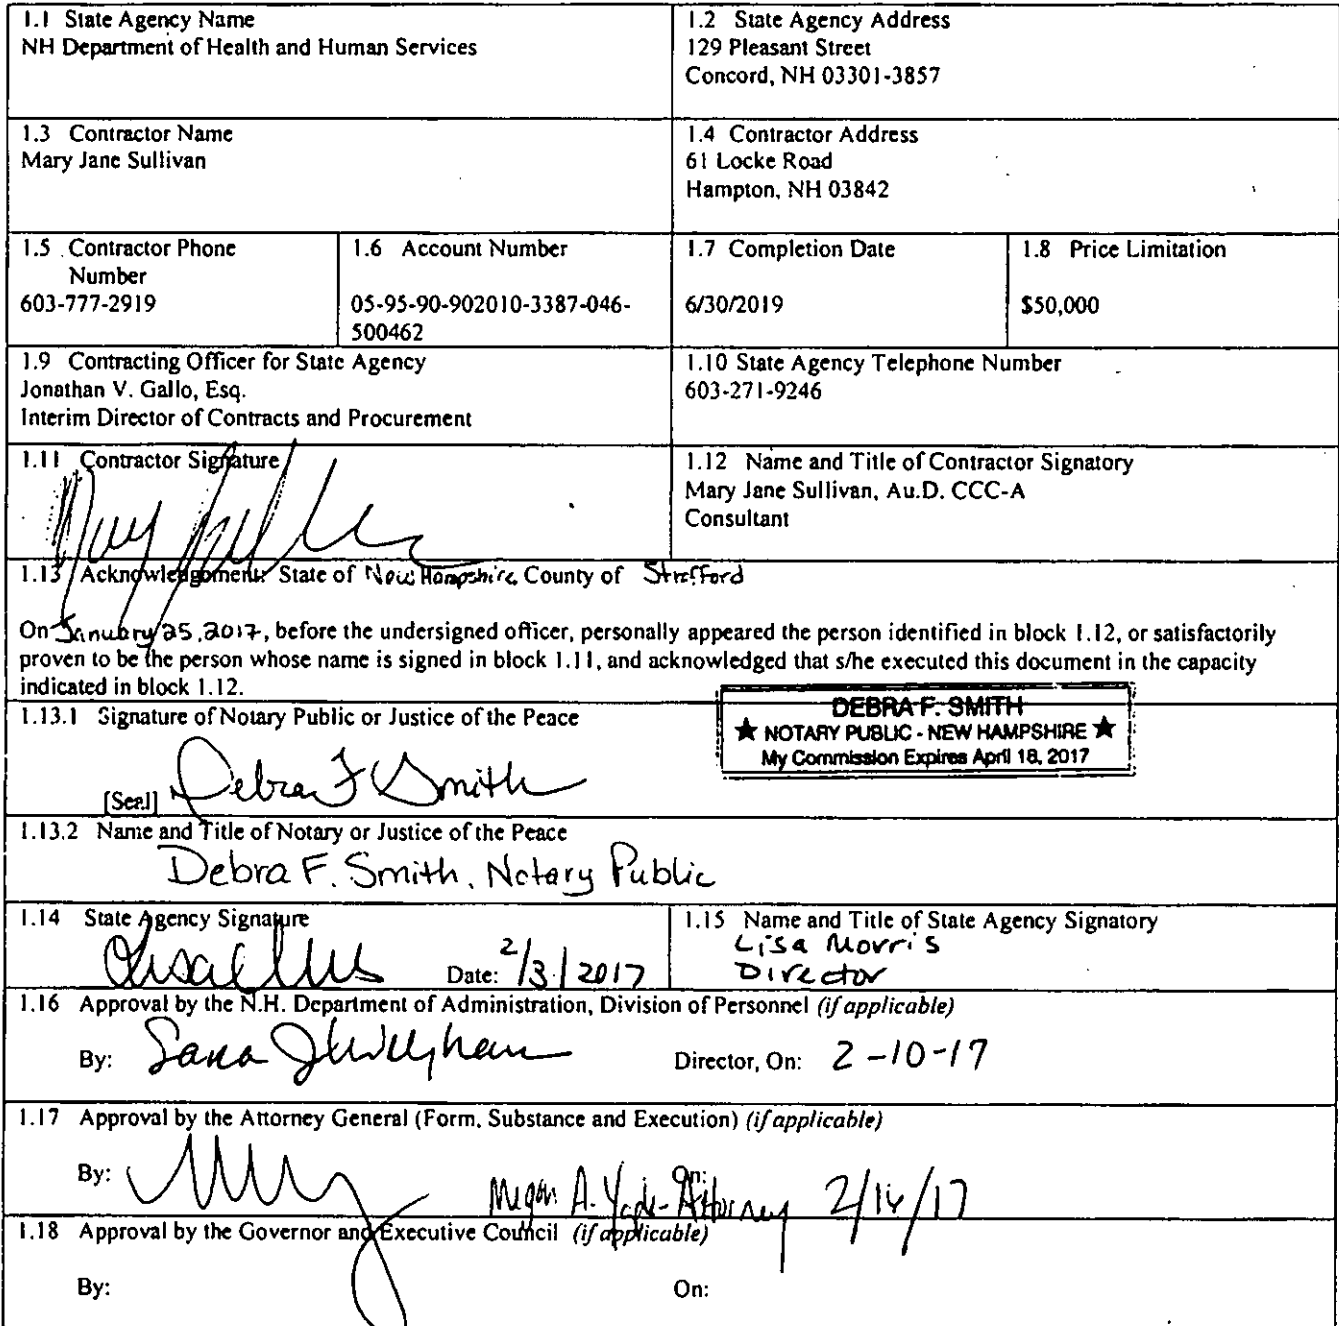 1.1 State Agency Name
NH Department of Health and Human Services
1.2 State Agency Address
129 Pleasant Street
Concord, NH 03301-3857
1.3 Contractor Name
Mary Jane Sullivan
1.4 Contractor Address
61 Locke Road
Hampton, NH 03842
1.5 Contractor Phone
Number
603-777-2919
1.6 Account Number
05-95-90-902010-3387-046-
500462
1.7 Completion Date
6/30/2019
1.8 Price Limitation
$50,000
1.9 Contracting Officer for State Agency
Jonathan V. Gallo, Esq.
Interim Director of Contracts and Procurement
1.10 State Agency Telephone Number
603-271-9246
1.11 Contractor Signature
1.12 Name and Title of Contractor Signatory
Mary Jane Sullivan, Au.D. CCC-A
Consultant
1.13 Acknowledgement: State of New Hampshire, County of Strafford
On January 25, 2017, before the undersigned officer, personally appeared the person identified in block 1.12, or satisfactorily
proven to be the person whose name is signed in block 1.11, and acknowledged that s/he executed this document in the capacity
indicated in block 1.12.
1.13.1 Signature of Notary Public or Justice of the Peace
DEBRA F. SMITH
★ NOTARY PUBLIC - NEW HAMPSHIRE ★
My Commission Expires April 18, 2017
[Seal] Debra F Smith
1.13.2 Name and Title of Notary or Justice of the Peace
Debra F. Smith, Notary Public
1.14 State Agency Signature
Date: 2/3/2017
1.15 Name and Title of State Agency Signatory
Lisa Morris
Director
1.16 Approval by the N.H. Department of Administration, Division of Personnel (if applicable)
By: Director, On: 2-10-17
1.17 Approval by the Attorney General (Form, Substance and Execution) (if applicable)
By: On:
Megan A. - Attorney
1.18 Approval by the Governor and Executive Council (if applicable)
By: On: